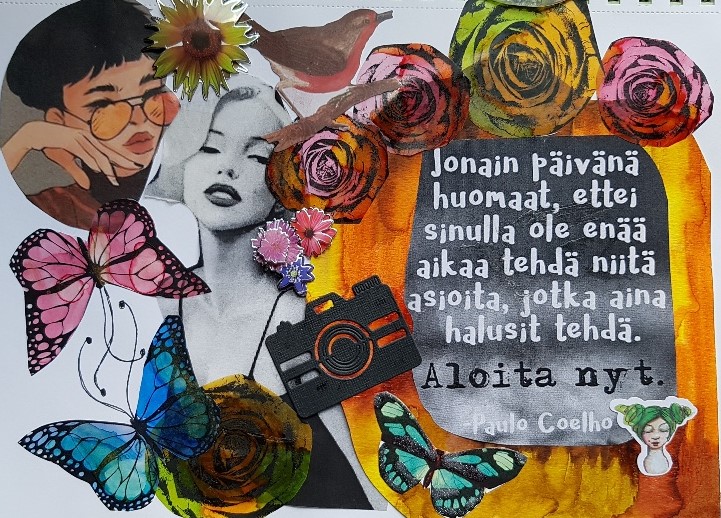 Jonain päivänä
huomaat, ettei
sinulla ole enää
aikaa tehdä niitä
asioita, jotka aina
halusit tehdä.
Aloita nyt.
-Paulo Coelho